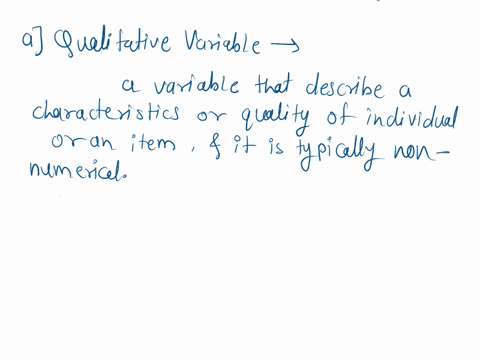 a] Qualitative Variable →
a variable that describe a
characteristics or quality of individual
or an item, & it is typically non-
numerical.